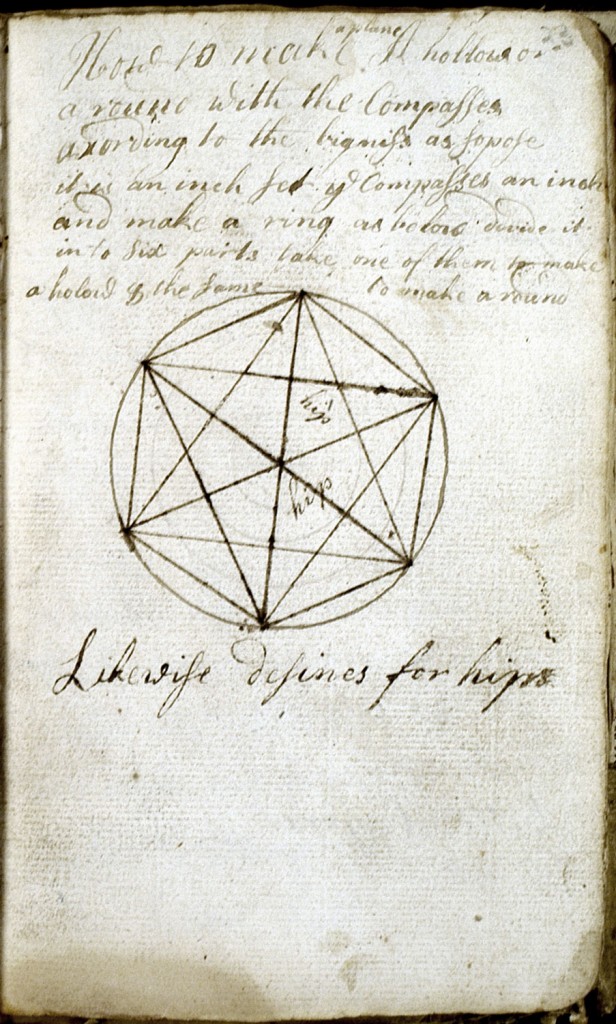 How to make A hollow or
a plane
a round with the Compasses
acording to the bigniss as sopose
it is an inch set yͤ Compasses an inch
and make a ring as below divide it
in to six parts take one of them to make
a holow & the same to make a round
hip
hips
Likewise desines for hips